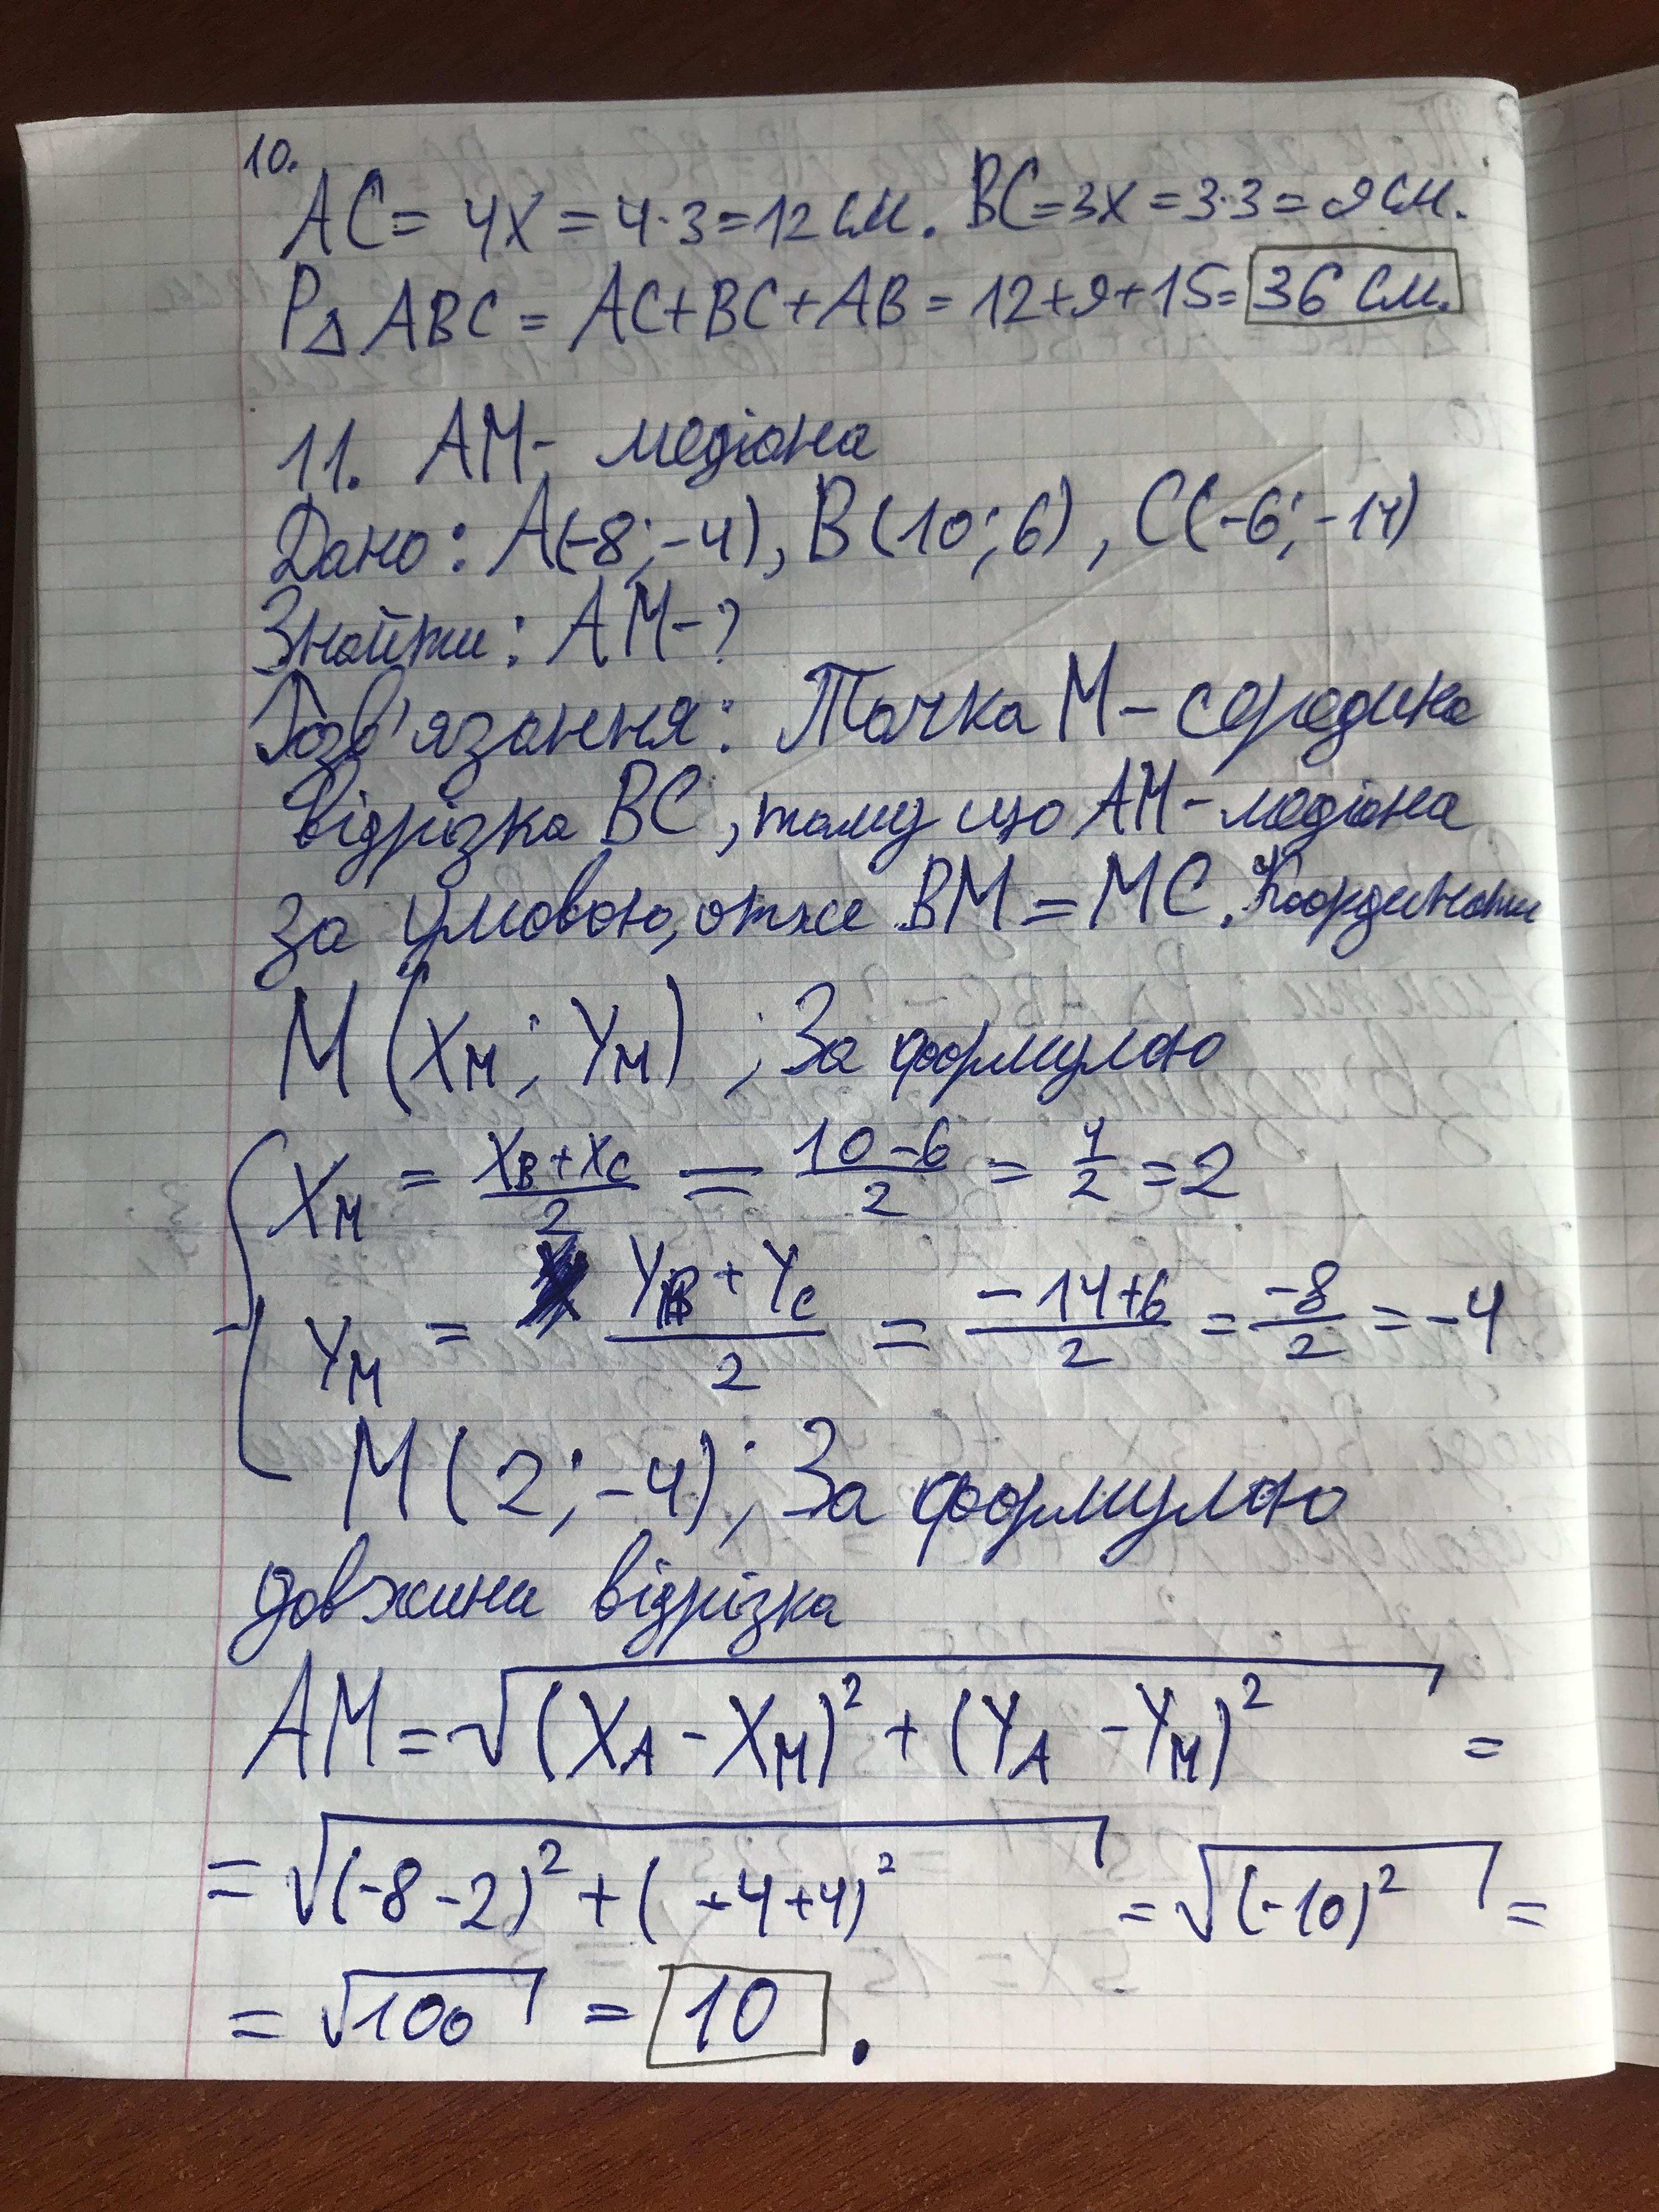 10.
AC = 4x = 4·3 = 12 см. BC = 3x = 3·3 = 9 см.
P△ ABC = AC + BC + AB = 12 + 9 + 15 = 36 см.
11. AM - медіана
Дано: A(-8; -4), B(10; 6), C(-6; -14)
Знайти: AM - ?
Розв'язання: Точка M - середина
відрізка BC, тому що AM - медіана
за умовою, отже BM = MC. Координати
M (Xм; Yм) ; За формулою
Xм = (XB + XC)/2 = (10 - 6)/2 = 4/2 = 2
Yм = (YB + YC)/2 = (-14 + 6)/2 = -8/2 = -4
M (2; -4) ; За формулою
довжини відрізка
AM = √((XA - XM)² + (YA - YM)²) =
= √((-8 - 2)² + (-4 + 4)²) = √((-10)²) =
= √100 = 10 .